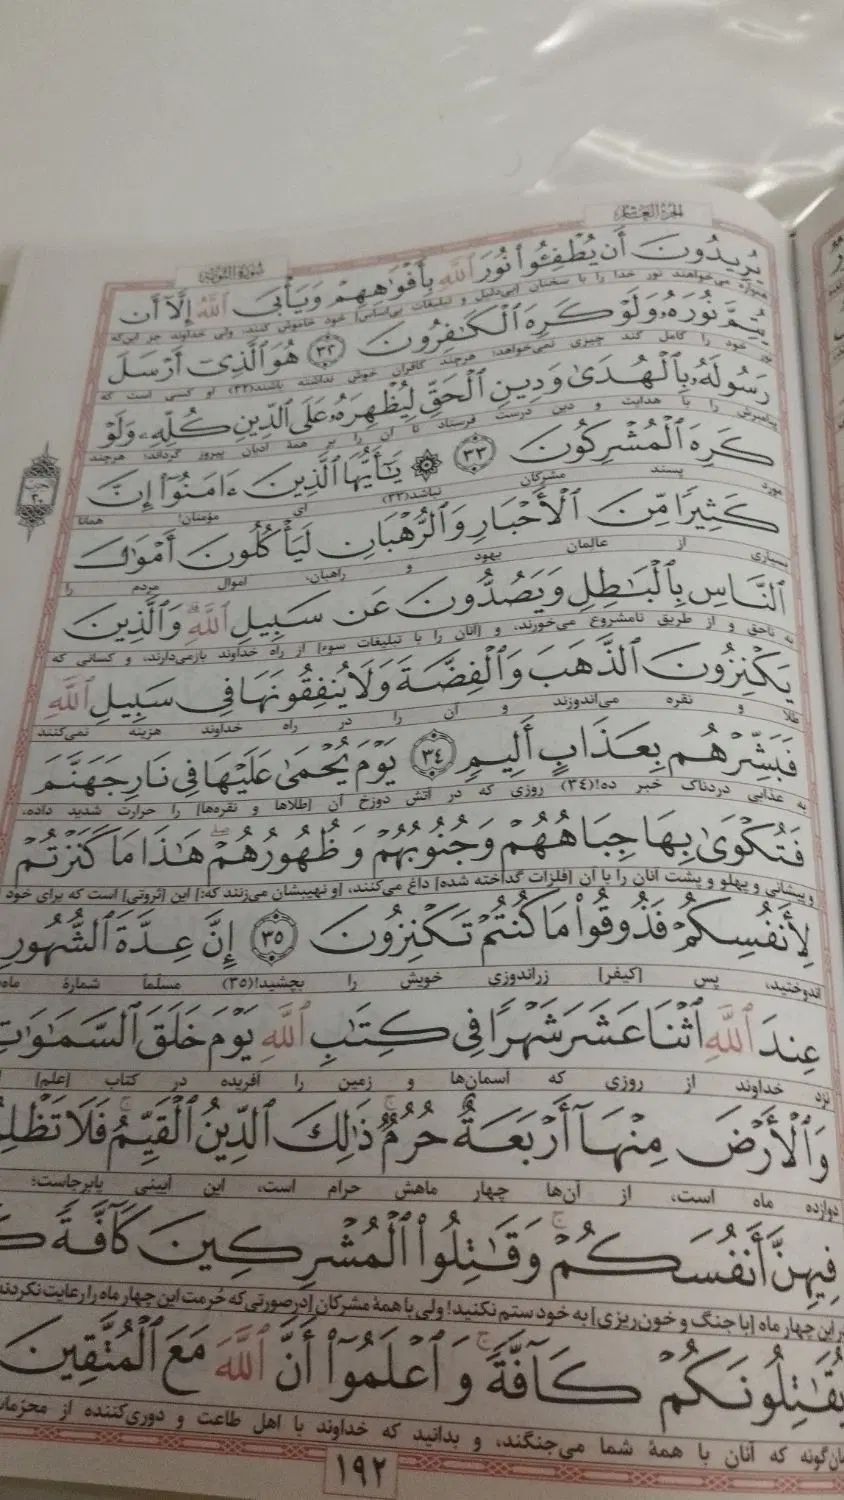 الجزء العاشر
سورة التوبة
يُرِيدُونَ أَن يُطْفِـُٔوا۟ نُورَ ٱللَّهِ بِأَفْوَٰهِهِمْ وَيَأْبَى ٱللَّهُ إِلَّآ أَن
همواره می‌خواهند نور خدا را با سخنان [بی‌دلیل و تبلیغات بی‌اساس] خود خاموش کنند؛ ولی خداوند جز این‌که
يُتِمَّ نُورَهُۥ وَلَوْ كَرِهَ ٱلْكَٰفِرُونَ ٣٢ هُوَ ٱلَّذِىٓ أَرْسَلَ
نور خود را کامل کند چیزی نمی‌خواهد؛ هرچند کافران خوش نداشته باشند(۳۲) او کسی است که
رَسُولَهُۥ بِٱلْهُدَىٰ وَدِينِ ٱلْحَقِّ لِيُظْهِرَهُۥ عَلَى ٱلدِّينِ كُلِّهِۦ وَلَوْ
پیامبرش را با هدایت و دین درست فرستاد تا آن را بر همهٔ ادیان پیروز گرداند؛ هرچند
كَرِهَ ٱلْمُشْرِكُونَ ٣٣ ۞ يَٰٓأَيُّهَا ٱلَّذِينَ ءَامَنُوٓا۟ إِنَّ
مورد پسند مشرکان نباشد(۳۳) ای مؤمنان! همانا
حزب ٢٠
كَثِيرًا مِّنَ ٱلْأَحْبَارِ وَٱلرُّهْبَانِ لَيَأْكُلُونَ أَمْوَٰلَ
بسیاری از عالمان یهود و راهبان، اموال مردم را
ٱلنَّاسِ بِٱلْبَٰطِلِ وَيَصُدُّونَ عَن سَبِيلِ ٱللَّهِ ۗ وَٱلَّذِينَ
به ناحق و از طریق نامشروع می‌خورند، و [آنان را با تبلیغات سوء] از راه خداوند بازمی‌دارند، و کسانی که
يَكْنِزُونَ ٱلذَّهَبَ وَٱلْفِضَّةَ وَلَا يُنفِقُونَهَا فِى سَبِيلِ ٱللَّهِ
طلا و نقره می‌اندوزند و آن را در راه خداوند هزینه نمی‌کنند
فَبَشِّرْهُم بِعَذَابٍ أَلِيمٍ ٣٤ يَوْمَ يُحْمَىٰ عَلَيْهَا فِى نَارِ جَهَنَّمَ
به عذابی دردناک خبر ده!(۳٤) روزی که در آتش دوزخ آن [طلاها و نقره‌ها] را حرارت شدید داده،
فَتُكْوَىٰ بِهَا جِبَاهُهُمْ وَجُنُوبُهُمْ وَظُهُورُهُمْ ۖ هَٰذَا مَا كَنَزْتُمْ
و پیشانی و پهلو و پشت آنان را با آن [فلزات گداخته شده] داغ می‌کنند، [و نهیبشان می‌زنند که:] این [ثروتی] است که برای خود
لِأَنفُسِكُمْ فَذُوقُوا۟ مَا كُنتُمْ تَكْنِزُونَ ٣٥ إِنَّ عِدَّةَ ٱلشُّهُورِ
اندوختید، پس [کیفر] زراندوزی خویش را بچشید!(۳۵) مسلّماً شمارهٔ ماه
عِندَ ٱللَّهِ ٱثْنَا عَشَرَ شَهْرًا فِى كِتَٰبِ ٱللَّهِ يَوْمَ خَلَقَ ٱلسَّمَٰوَٰتِ
نزد خداوند از روزی که آسمان‌ها و زمین را آفریده در کتاب [علم]
وَٱلْأَرْضَ مِنْهَآ أَرْبَعَةٌ حُرُمٌ ۚ ذَٰلِكَ ٱلدِّينُ ٱلْقَيِّمُ ۚ فَلَا تَظْلِ
دوازده ماه است، از آن‌ها چهار ماهش حرام است، این آیینی پابرجاست؛
فِيهِنَّ أَنفُسَكُمْ ۚ وَقَٰتِلُوا۟ ٱلْمُشْرِكِينَ كَآفَّةً كَ
در این چهار ماه [با جنگ و خون‌ریزی] به خود ستم نکنید! ولی با همهٔ مشرکان [درصورتی‌که حُرمت این چهار ماه را رعایت نکردند
يُقَٰتِلُونَكُمْ كَآفَّةً ۚ وَٱعْلَمُوٓا۟ أَنَّ ٱللَّهَ مَعَ ٱلْمُتَّقِينَ
همان‌گونه که آنان با همهٔ شما می‌جنگند، و بدانید که خداوند با اهل طاعت و دوری‌کننده از محرّمات
١٩٢